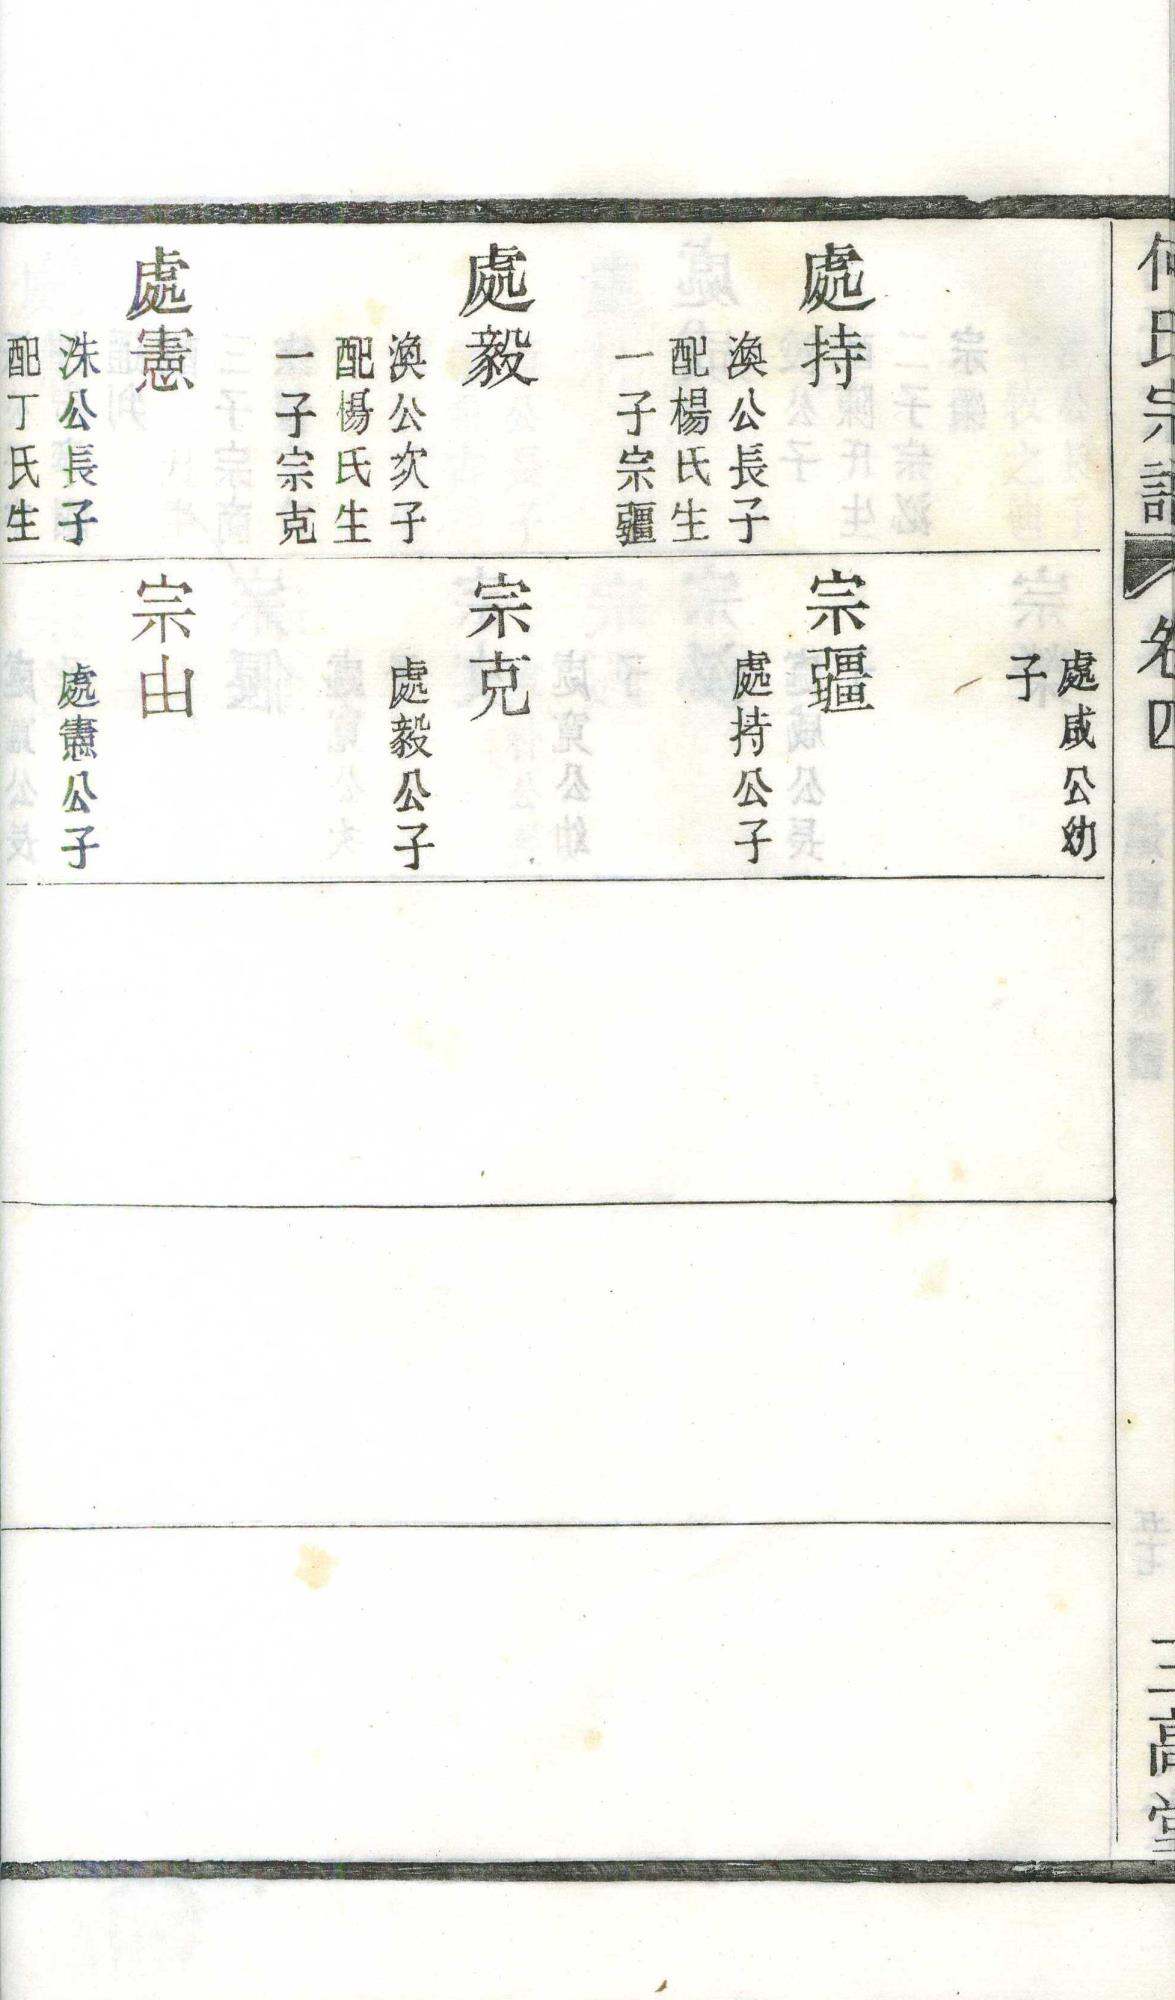 何氏宗譜
卷四
三高堂
處持
渙公長子
配楊氏生
一子宗疆
處毅
渙公次子
配楊氏生
一子宗克
處憲
洙公長子
配丁氏生
處咸公幼
子
宗疆
處持公子
宗克
處毅公子
宗由
處憲公子